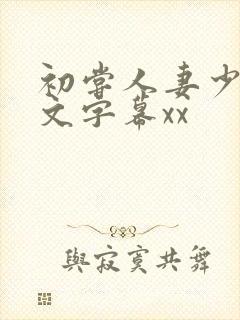 初尝人妻少
文字幕xx
與寂寞共舞